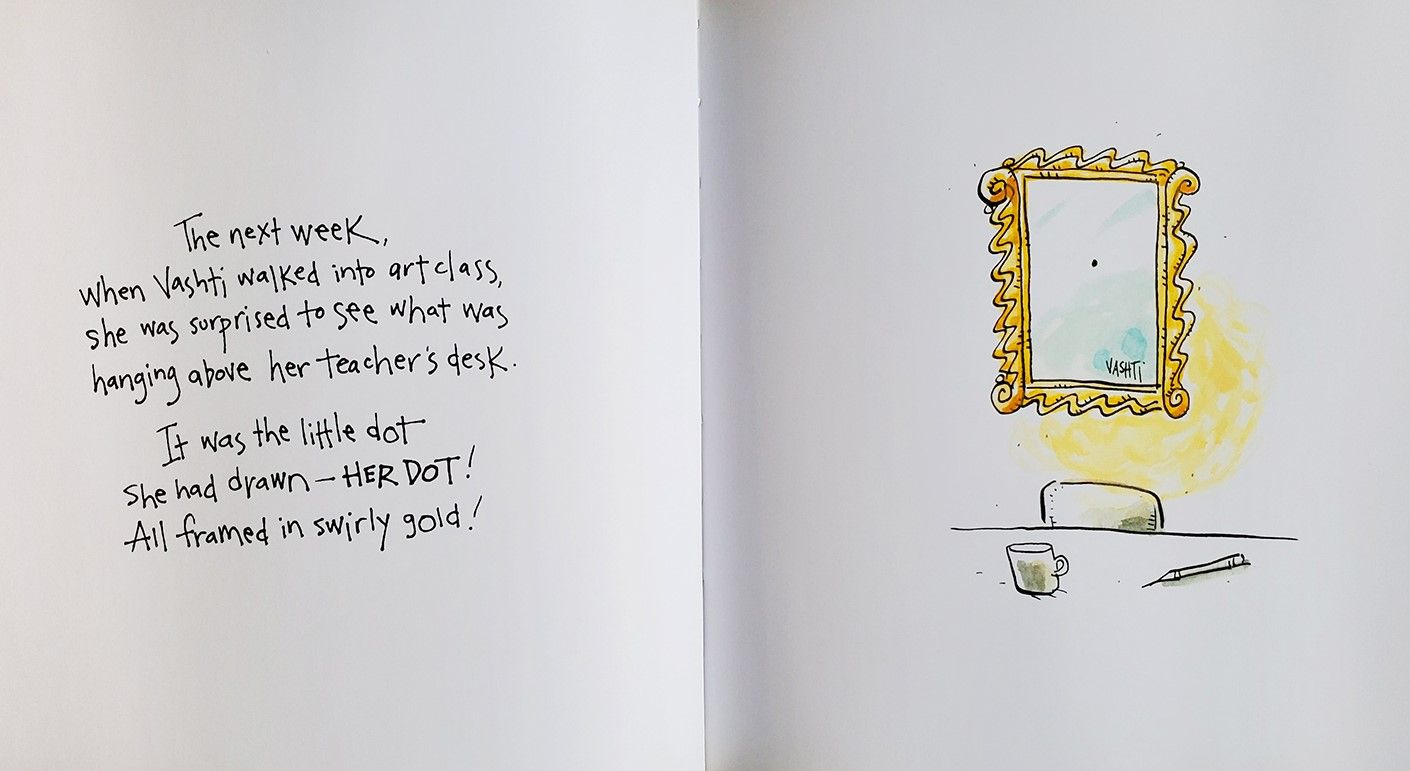 The next week,
when Vashti walked into art class,
she was surprised to see what was
hanging above her teacher's desk.
It was the little dot
she had drawn — HER DOT!
All framed in swirly gold!
VASHTi